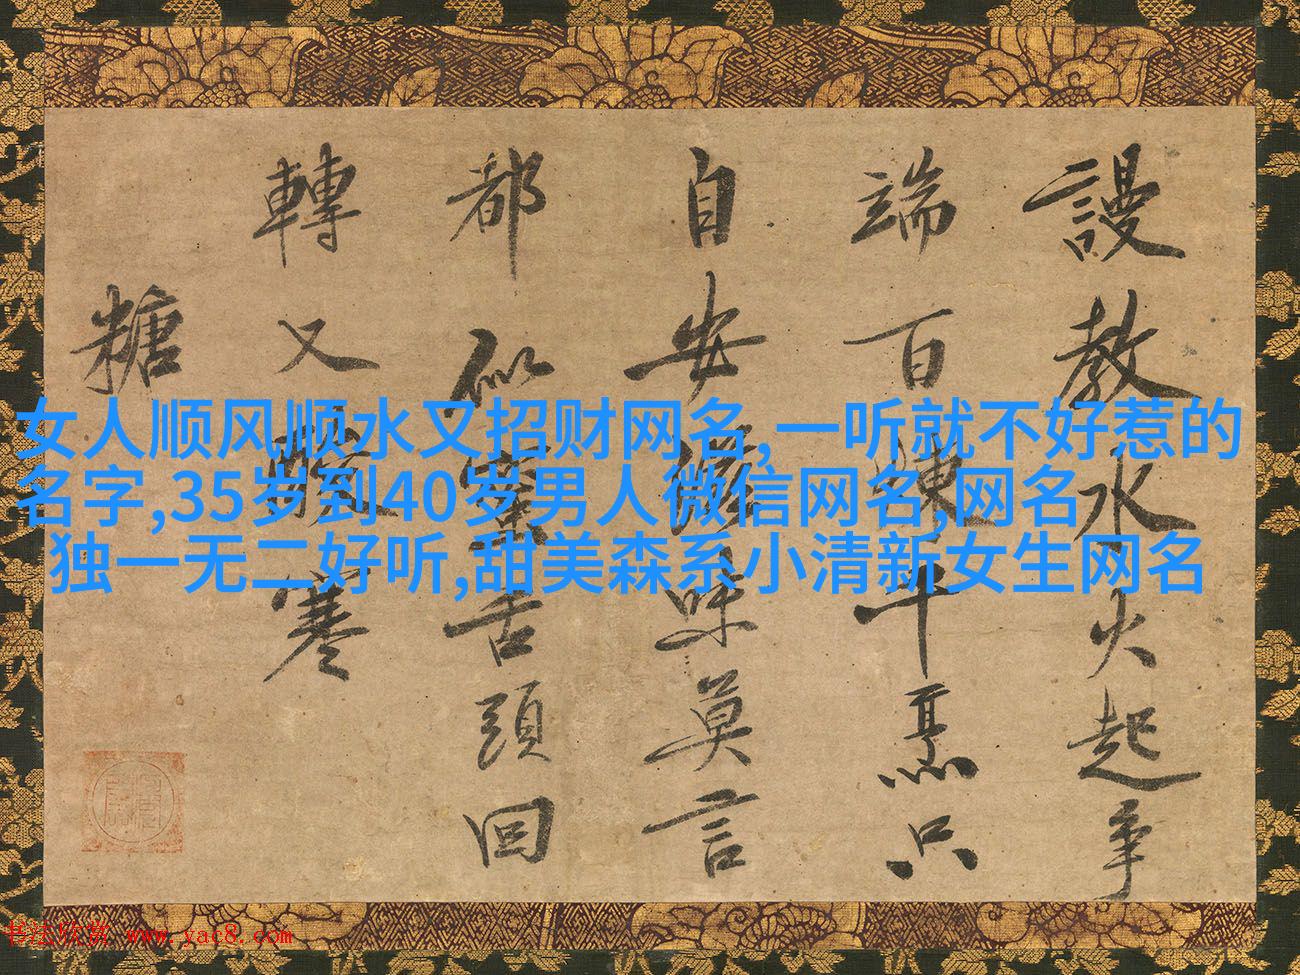 謾教水火起争
端百煉千熏只
自安味莫言
都似舌頭回
轉又寒
糖
女人顺风顺水又招财网名,一听就不好惹的
名字,35岁到40岁男人微信网名,网名
独一无二好听,甜美森系小清新女生网名
书法欣赏 www.yac8.com